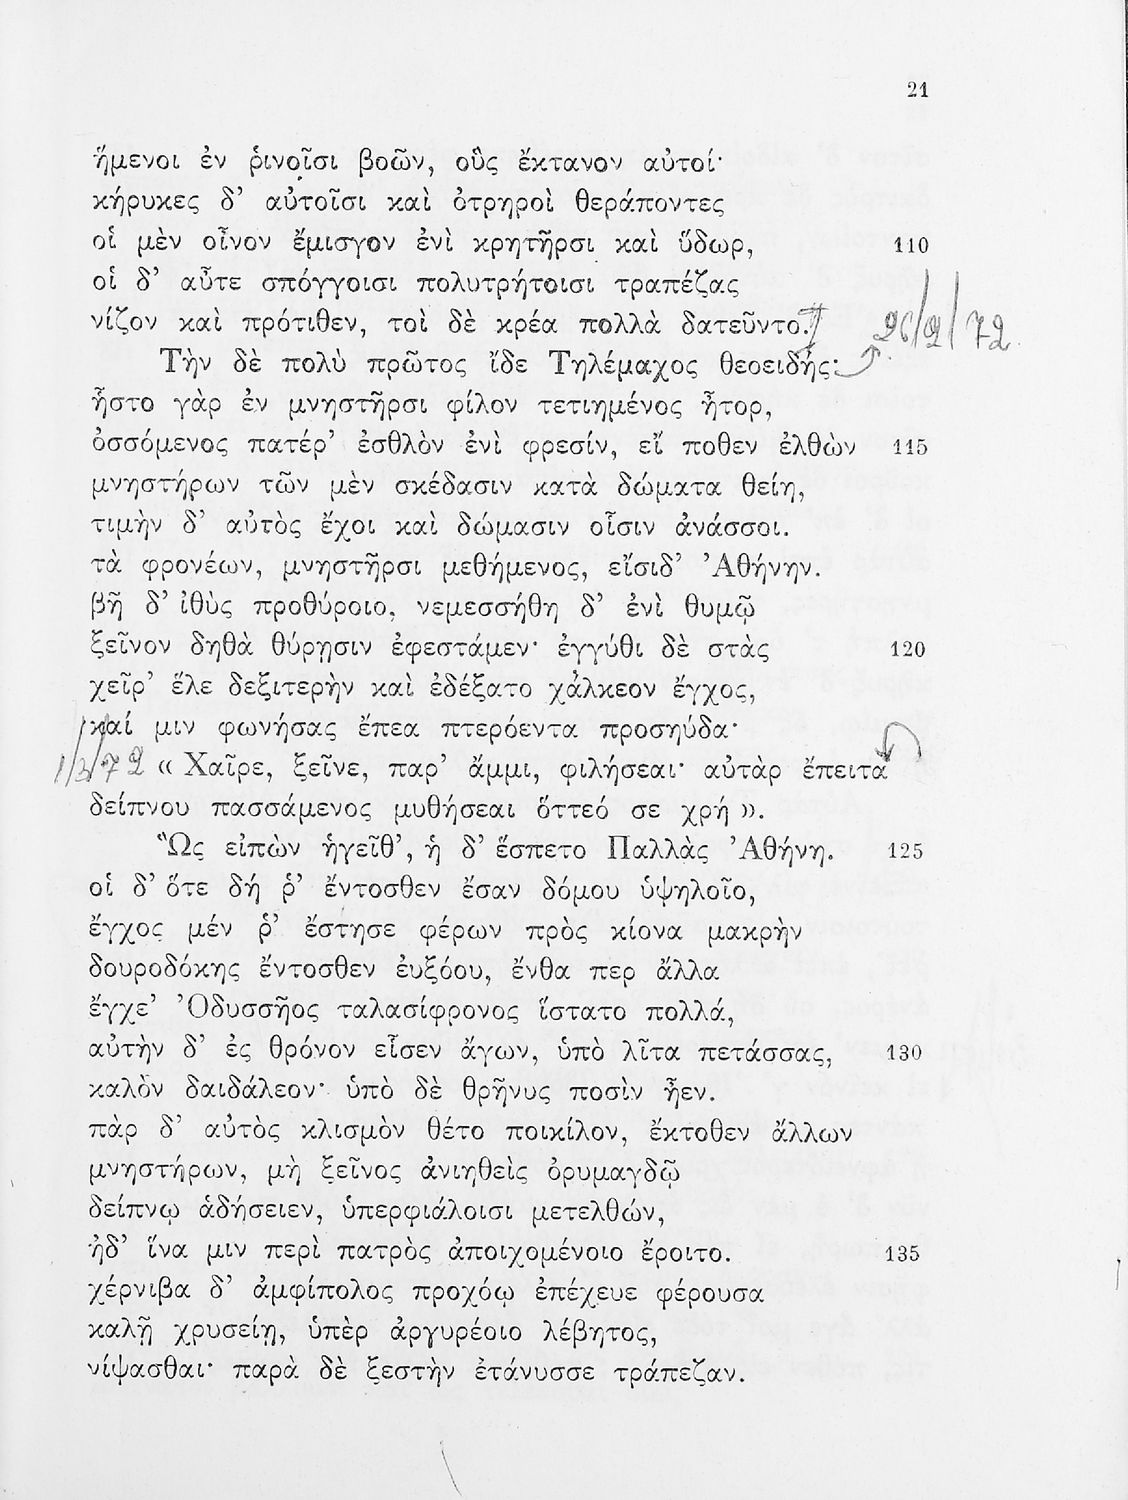 21
ἥμενοι ἐν ῥινοῖσι βοῶν, οὓς ἔκτανον αὐτοί·
κήρυκες δ’ αὐτοῖσι καὶ ὀτρηροὶ θεράποντες
οἱ μὲν οἶνον ἔμισγον ἐνὶ κρητῆρσι καὶ ὕδωρ, 110
οἱ δ’ αὖτε σπόγγοισι πολυτρήτοισι τραπέζας
νίζον καὶ πρότιθεν, τοὶ δὲ κρέα πολλὰ δατεῦντο. 26/2/72
Τὴν δὲ πολὺ πρῶτος ἴδε Τηλέμαχος θεοειδής·
ἧστο γὰρ ἐν μνηστῆρσι φίλον τετιημένος ἦτορ,
ὀσσόμενος πατέρ’ ἐσθλὸν ἐνὶ φρεσίν, εἴ ποθεν ἐλθὼν 115
μνηστήρων τῶν μὲν σκέδασιν κατὰ δώματα θείη,
τιμὴν δ’ αὐτὸς ἔχοι καὶ δώμασιν οἷσιν ἀνάσσοι.
τὰ φρονέων, μνηστῆρσι μεθήμενος, εἴσιδ’ Ἀθήνην.
βῆ δ’ ἰθὺς προθύροιο, νεμεσσήθη δ’ ἐνὶ θυμῷ
ξεῖνον δηθὰ θύρῃσιν ἐφεστάμεν· ἐγγύθι δὲ στὰς 120
χεῖρ’ ἕλε δεξιτερὴν καὶ ἐδέξατο χάλκεον ἔγχος,
καί μιν φωνήσας ἔπεα πτερόεντα προσηύδα·
1/3/72 « Χαῖρε, ξεῖνε, παρ’ ἄμμι, φιλήσεαι· αὐτὰρ ἔπειτα
δείπνου πασσάμενος μυθήσεαι ὅττεό σε χρή ».
Ὣς εἰπὼν ἡγεῖθ’, ἡ δ’ ἕσπετο Παλλὰς Ἀθήνη. 125
οἱ δ’ ὅτε δή ῥ’ ἔντοσθεν ἔσαν δόμου ὑψηλοῖο,
ἔγχος μέν ῥ’ ἔστησε φέρων πρὸς κίονα μακρὴν
δουροδόκης ἔντοσθεν ἐυξόου, ἔνθα περ ἄλλα
ἔγχε’ Ὀδυσσῆος ταλασίφρονος ἵστατο πολλά,
αὐτὴν δ’ ἐς θρόνον εἷσεν ἄγων, ὑπὸ λῖτα πετάσσας, 130
καλὸν δαιδάλεον· ὑπὸ δὲ θρῆνυς ποσὶν ἦεν.
πὰρ δ’ αὐτὸς κλισμὸν θέτο ποικίλον, ἔκτοθεν ἄλλων
μνηστήρων, μὴ ξεῖνος ἀνιηθεὶς ὀρυμαγδῷ
δείπνῳ ἁδήσειεν, ὑπερφιάλοισι μετελθών,
ἠδ’ ἵνα μιν περὶ πατρὸς ἀποιχομένοιο ἔροιτο. 135
χέρνιβα δ’ ἀμφίπολος προχόῳ ἐπέχευε φέρουσα
καλῇ χρυσείῃ, ὑπὲρ ἀργυρέοιο λέβητος,
νίψασθαι· παρὰ δὲ ξεστὴν ἐτάνυσσε τράπεζαν.